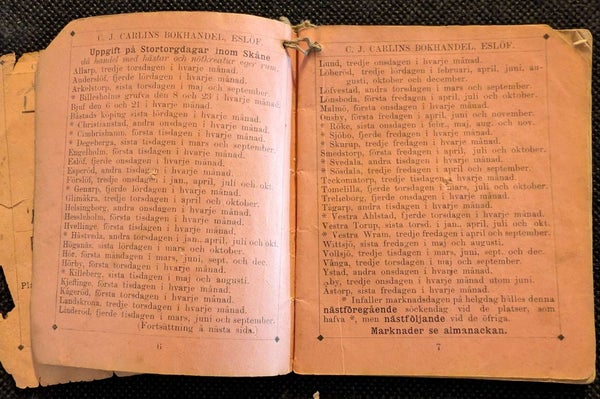 C. J. CARLINS BOKHANDEL, ESLÖF.
Uppgift på Stortorgdagar inom Skåne
då handel med hästar och nötkreatur eger rum.
Allarp, tredje torsdagen i hvarje månad.
Anderslöf, fjerde lördagen i hvarje månad.
Arkelstorp, sista torsdagen i maj och september.
* Billesholms grufva den 8 och 23 i hvarje månad.
Bjuf den 6 och 21 i hvarje månad.
Båstads köping sista lördagen i hvarje månad.
* Christianstad, andra onsdagen i hvarje månad.
* Cimbrishamn, första tisdagen i hvarje månad.
* Degeberga, sista tisdagen i mars och september.
Engelholm, första torsdagen i hvarje månad.
Eslöf, fjerde onsdagen i hvarje månad.
Esperöd, andra tisdagen i
Förslöf, tredje onsdagen i jan., april, juli och okt.
* Genarp, fjerde lördagen i hvarje månad.
Glimåkra, tredje torsdagen i april och oktober.
Helsingborg, andra onsdagen i hvarje månad.
Hessleholm, första onsdagen i hvarje månad.
Hvellinge, första torsdagen i hvarje månad.
* Hästveda, andra torsdagen i jan., april, juli och okt.
Höganäs, sista lördagen i mars och oktober.
Hör, första måndagen i mars, juni, sept. och dec.
Hörby, första torsdagen i hvarje månad.
* Killeberg, sista tisdagen i maj och augusti.
Kjeflinge, första torsdagen i hvarje månad.
Kågeröd, första tisdagen i hvarje månad.
Landskrona, tredje torsdagen i hvarje månad.
Linderöd, fjerde tisdagen i mars, juni och september.
(Fortsättning å nästa sida.)
6
C. J. CARLINS BOKHANDEL, ESLÖF.
Lund, tredje onsdagen i hvarje månad.
Löberöd, tredje lördagen i februari, april, juni, augusti, oktober och december.
Löfvestad, andra torsdagen i mars och september.
Lönsboda, första fredagen i april, juli och oktober.
Malmö, första fredagen i hvarje månad.
Önsby, första fredagen i april, juni och november.
* Röke, sista onsdagen i febr., maj, aug. och nov.
* Sjöbo, fjerde fredagen i hvarje månad.
* Skurup, tredje fredagen i hvarje månad.
Smedstorp, första fredagen i april, juli och oktober.
* Svedala, andra tisdagen i hvarje månad.
* Sösdala, tredje fredagen i hvarje månad.
Teckomatorp, tredje tisdagen i hvarje månad.
Tomelilla, fjerde torsdagen i mars, juli och oktober.
Trelleborg, andra fredagen i hvarje månad.
Tågarp, andra tisdagen i hvarje månad.
* Vestra Ahlstad, fjerde torsdagen i hvarje månad.
Vestra Torup, sista torsd. i jan., april, juli och okt.
* Vestra Wram, tredje fredagen i april och september.
Wittsjö, sista fredagen i maj och augusti.
Vollsjö, tredje tisdagen i mars, juni, sept. och dec.
Vånga, tredje tisdagen i maj och september.
Ystad, andra onsdagen i hvarje månad.
by, tredje onsdagen i hvarje månad utom juni.
Åstorp, sista fredagen i hvarje månad.
* Infaller marknadsdagen på helgdag hålles denna
nästföregående söckendag vid de platser, som
hafva *, men nästföljande vid de öfriga.
Marknader se almanackan.
7